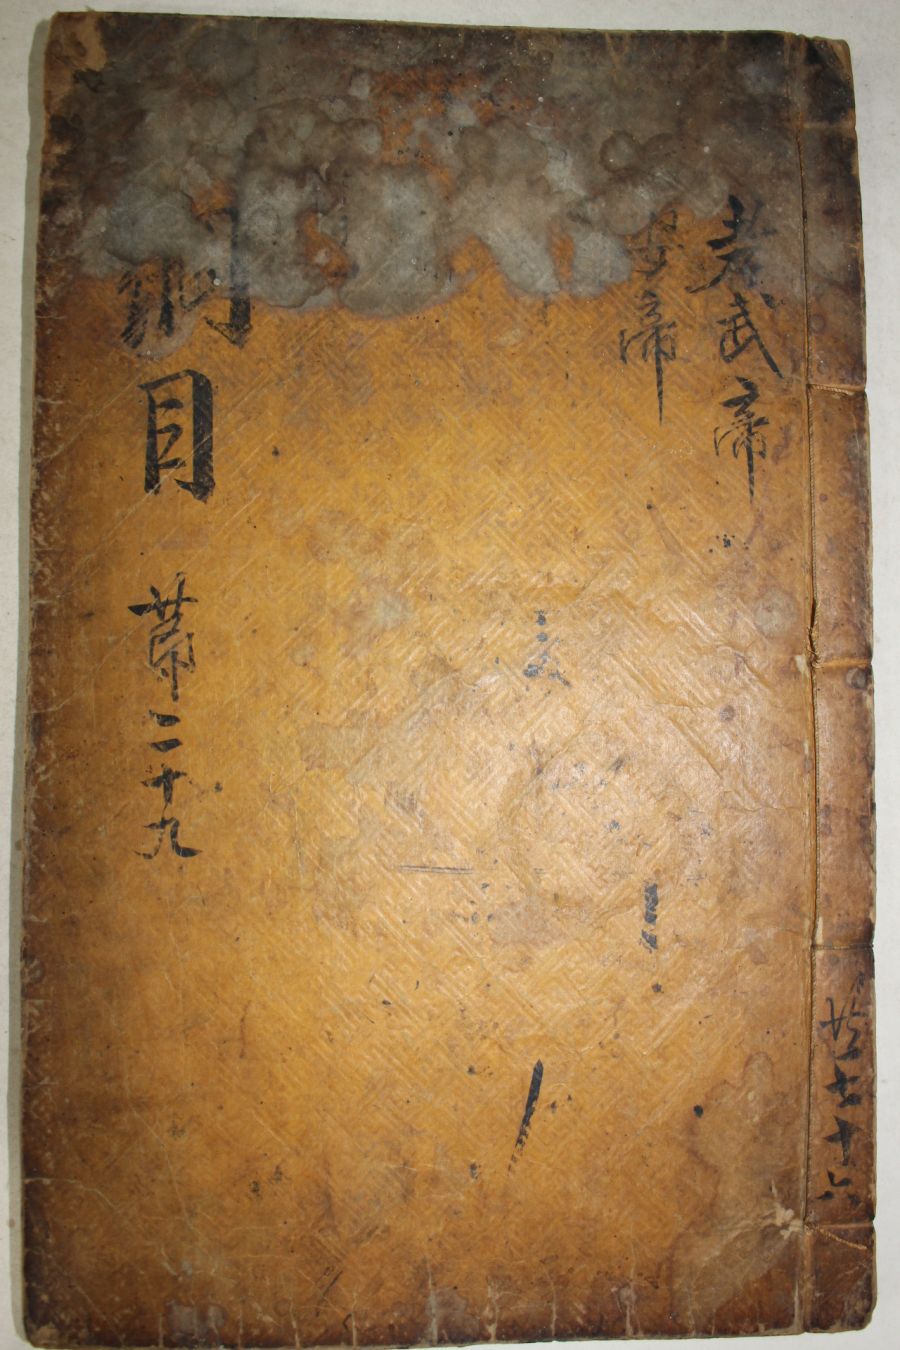 孝武帝
安帝
綱目 第二十九
共七十六